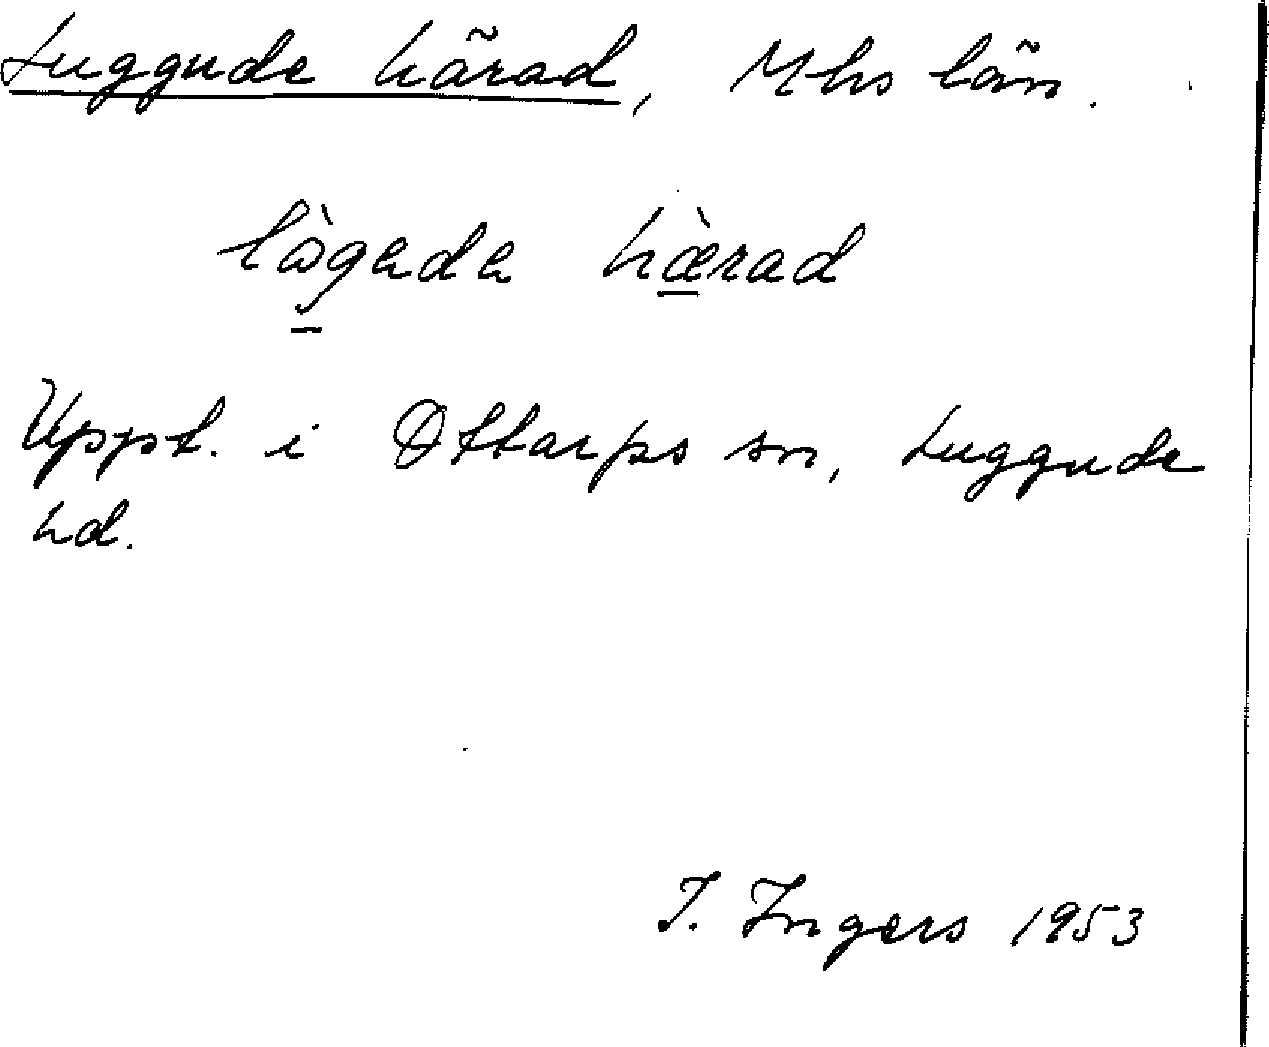 Luggude härad, Mhs län.
lògade hæ̀rad
Uppt. i Ottarps sn, Luggude
hd.
I. Ingers 1953